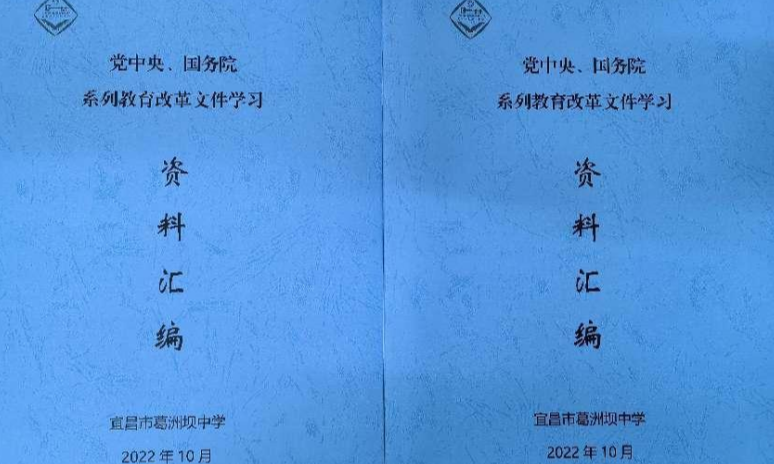 党中央、国务院
系列教育改革文件学习
资
料
汇
编
宜昌市葛洲坝中学
2022年10月
党中央、国务院
系列教育改革文件学习
资
料
汇
编
宜昌市葛洲坝中学
2022年10月